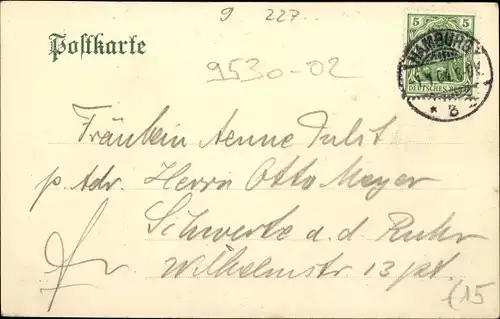 9 227
5 5
Postkarte
HAMBURG
DEUTSCHES REICH
* 8 *
9530-02
Fräulein Aenne Tulst
p. Adr. Herrn Otto Meyer
Schwerte a. d. Ruhr
Fr. Wilhelmstr 13 pt.
(15